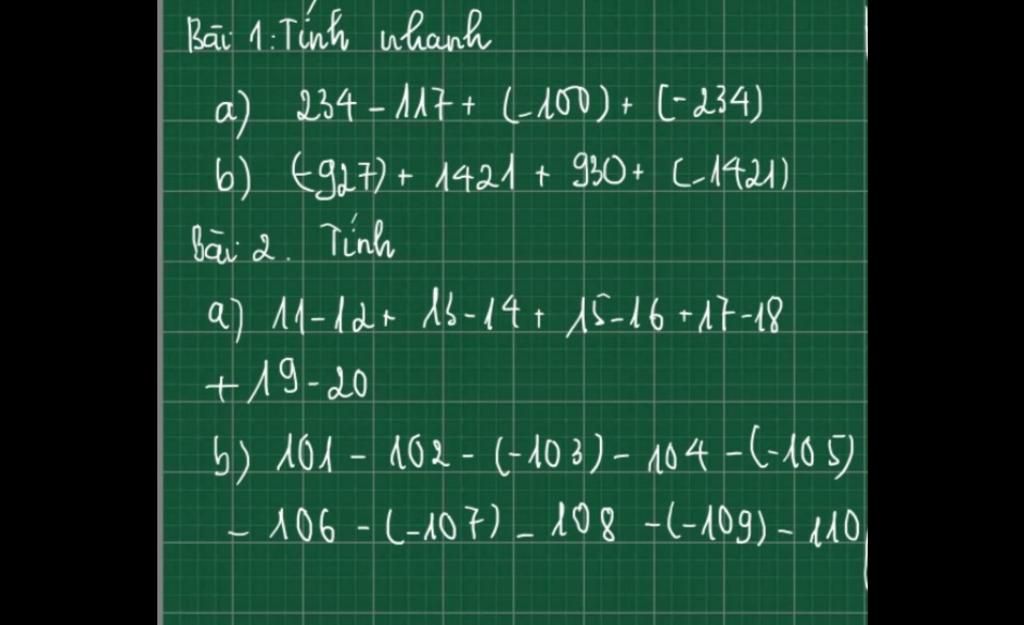 Bài 1: Tính nhanh
a) 234 - 117 + (-100) + (-234)
b) (-927) + 1421 + 930 + (-1421)
Bài 2. Tính
a) 11 - 12 + 13 - 14 + 15 - 16 + 17 - 18
+ 19 - 20
b) 101 - 102 - (-103) - 104 - (-105)
- 106 - (-107) - 108 - (-109) - 110